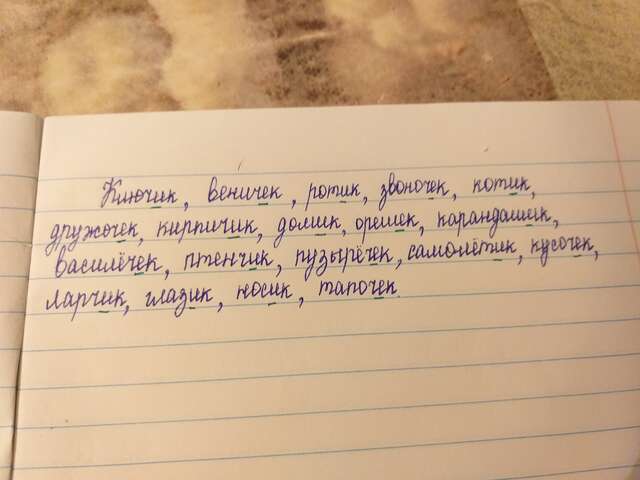 Ключик, веничек, ротик, звоночек, котик,
дружочек, кирпичик, домик, орешек, карандашик,
василёчек, птенчик, пузырёчек, самолётик, кусочек,
ларчик, глазик, носик, тапочек